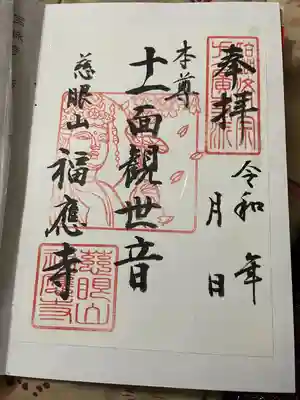 奉拝
令和 年
月 日
本尊
十一面観世音
慈眼山
福應寺
慈眼山
福應寺